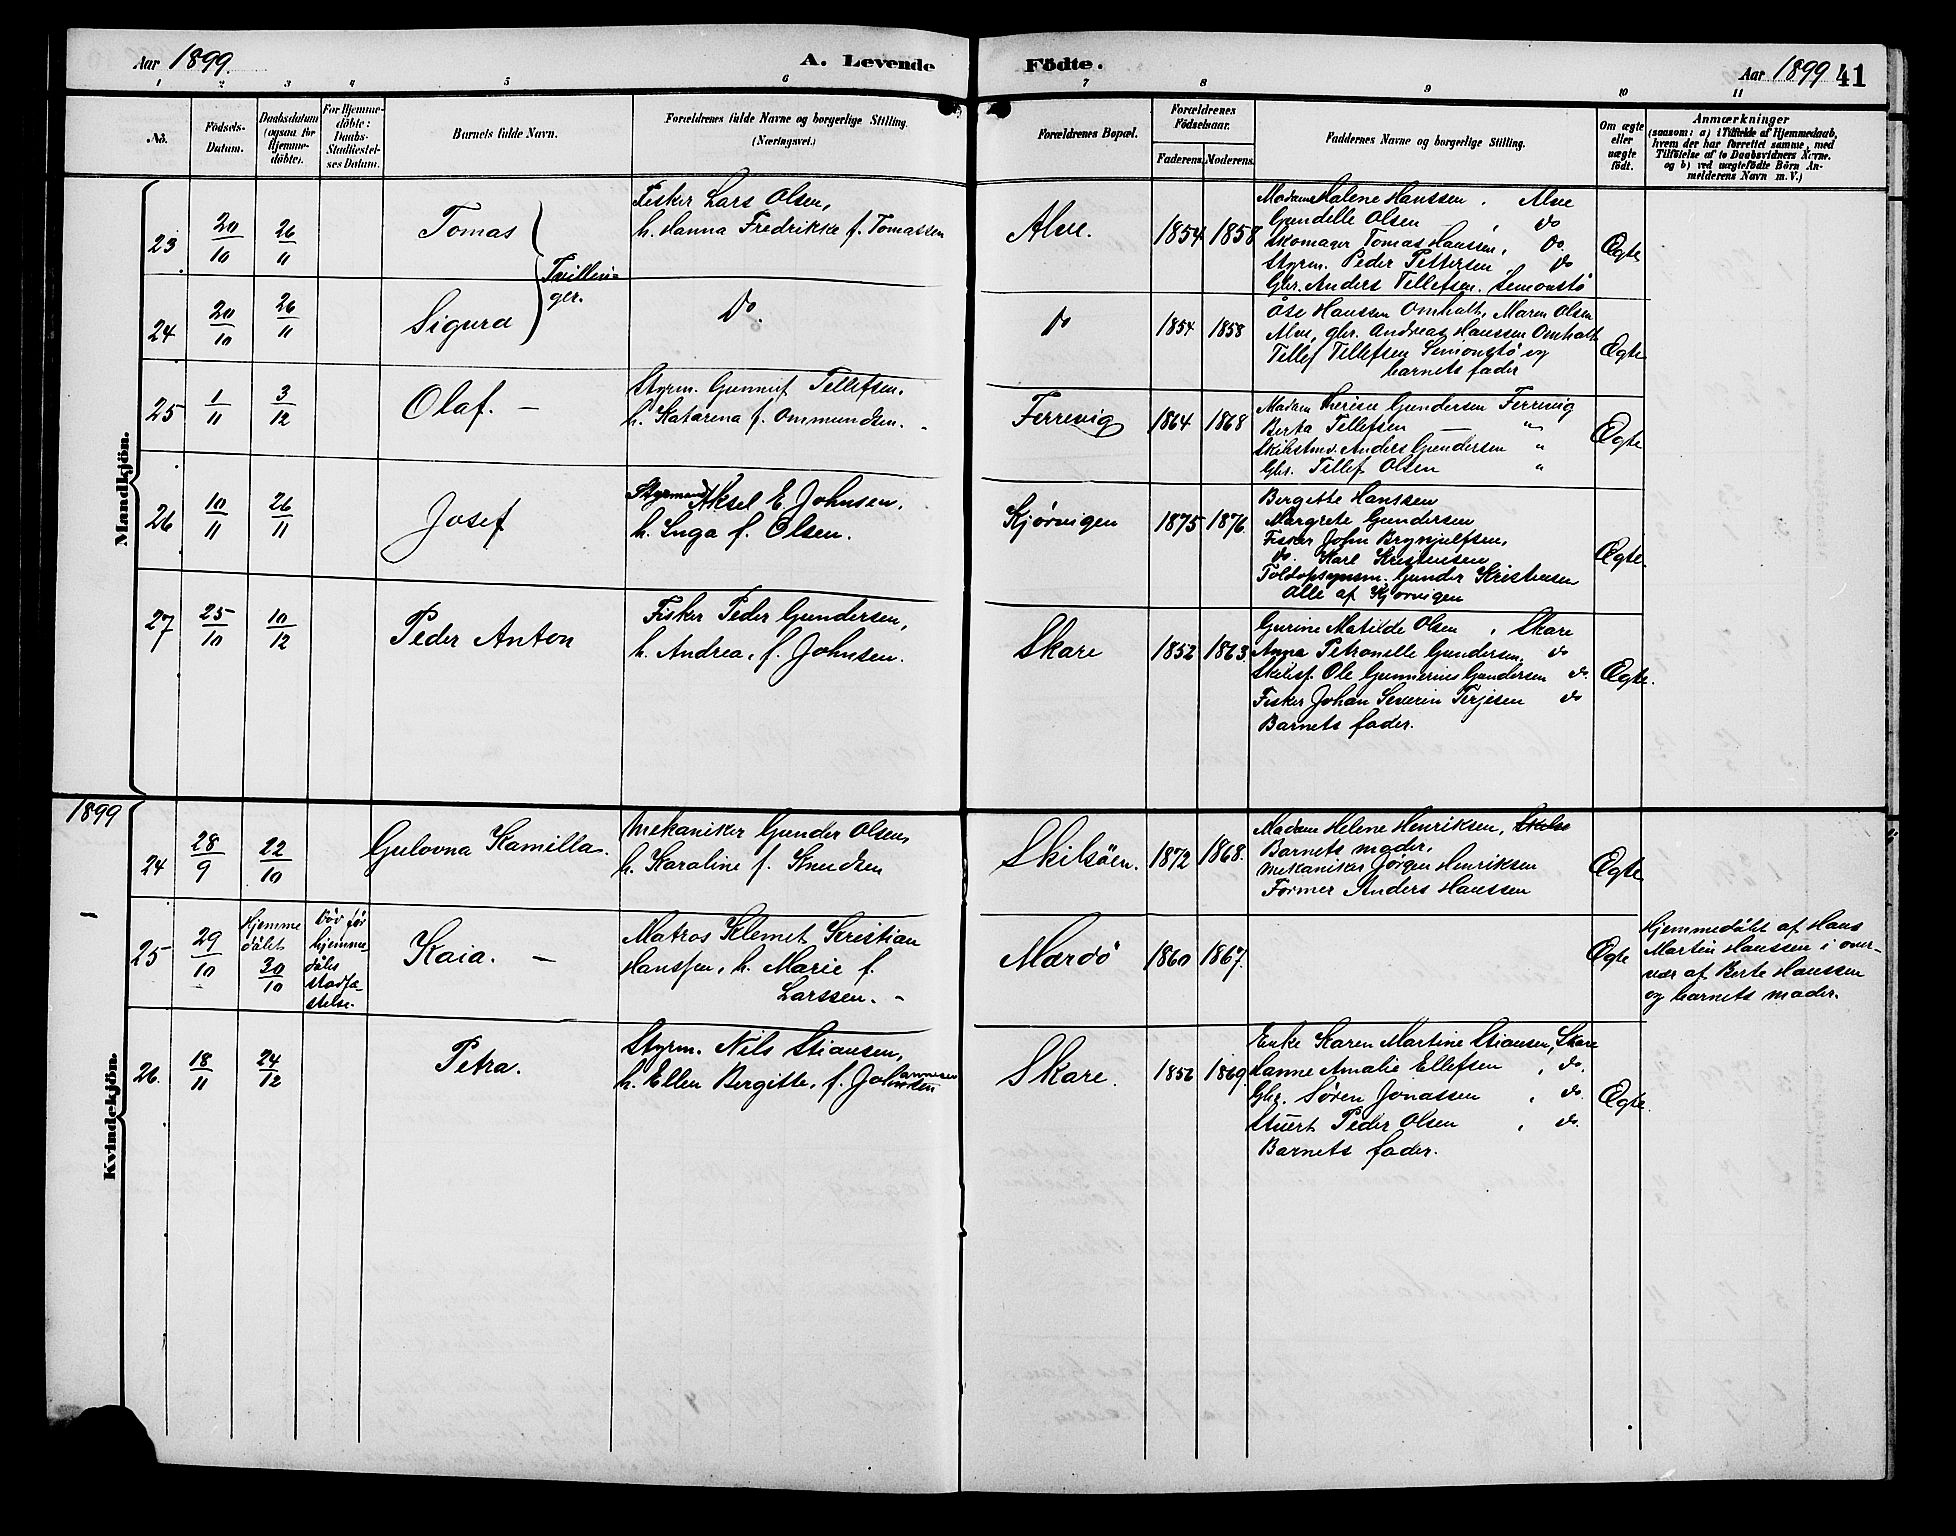 Aar 1899. A. Levende Födte. Aar 1899 41
1 2 3 4 5 6 7 8 9 10 11
No.
Födsels-
Datum.
Daabsdatum
(ogsaa for
Hjemme-
döbte).
For Hjemme-
döbte:
Daabs-
Stadfæstel-
ses Datum.
Barnets fulde Navn.
Forældrenes fulde Navne og borgerlige Stilling.
(Næringsvei.)
Forældrenes Bopæl.
Forældrenes
Födselsaar.
Faderens. Moderens.
Faddernes Navne og borgerlige Stilling.
Om ægte
eller
uægte
födt.
Anmærkninger
(saasom: a) i Tilfælde af Hjemmedaab,
hvem der har forrettet samme, med
Tilföielse af to Daabsvidners Navne.
og b) ved uægtefödte Börn An-
melderens Navn m. V.)
Mandkjön.
23
20/10
26/11
Tomas
Tvillin-
ger.
Fisker Lars Olsen,
h. Hanna Fredrikke f. Tomassen
Alve.
1854 1858
Madam Malene Hanssen, Alve
Gundelle Olsen, do
Skomager Tomas Hanssen, Do.
Styrm. Peder Pettersen do
Gbr. Anders Tellefsen. Simonstø
Ægte
24
20/10
26/11
Sigurd
Do.
Do
1854 1858
Åse Hanssen Omholt, Maren Olsen
Alve, gbr. Andreas Hanssen Omholt
Tellef Tellefsen Simonstø og
barnets fader
Ægte
25
1/11
3/12
Olaf. –
Styrm. Gunnuf Tellefsen.
h. Katarina f. Ommundsen. -
Ferrevig
1864 1868
Madam Therese Gundersen Ferrevig
Berta Tellefsen — "
Skibstmd. Anders Gundersen "
Gbr. Tellef Olsen "
Ægte
26
10/11
26/11
Josef
Styrmand Aksel E. Johnsen.
h. Inga f. Olsen.
Kjørvigen
1875 1876.
Bergette Hanssen
Margrete Gundersen
Fisker John Brynjulfsen,
do Karl Kristensen
Toldopsynsm. Gunder Kristensen
Alle af Kjørvigen
Ægte.
27
25/10
10/12
Peder Anton
Fisker Peder Gundersen,
h. Andrea, f. Johnsen.
Skare
1852 1863.
Gurine Matilde Olsen, Skare
Anna Petronelle Gundersen, do
Skibsf. Ole Gunnerius Gundersen do.
Fisker Johan Severin Terjesen do
Barnets fader.
Ægte.
1899
Kvindekjön.
24
28/9
22/10
Gulovna Kamilla.
Mekaniker Gunder Olsen,
h. Karoline f. Knudsen
Skilsöen.
1872 1868.
Madam Helene Henriksen,
Barnets moder,
Mekaniker Jørgen Henriksen
Former Anders Hanssen
Ægte
25
29/10
Hjemme
døbt
30/10
Død før
hjemme-
døbs
stadfæ-
stelse.
Kaia. –
Matros Klemet Kristian
Hanssen, h. Marie f.
Larssen. -
Mærdö
1860 1867.
Ægte
Hjemmedøbt af Hans
Martin Hanssen i over-
vær af Berte Hanssen
og barnets moder.
26.
18/11
24/12
Petra.
Styrm. Nils Stiansen,
h. Ellen Bergitte, f. Johannesen
Skare.
1856 1869.
Enke Karen Martine Stiansen, Skare
Hanne Amalie Ellefsen, do.
Gbr. Søren Jonassen, do.
Stuert Peder Olsen, do.
Barnets fader.
Ægte.